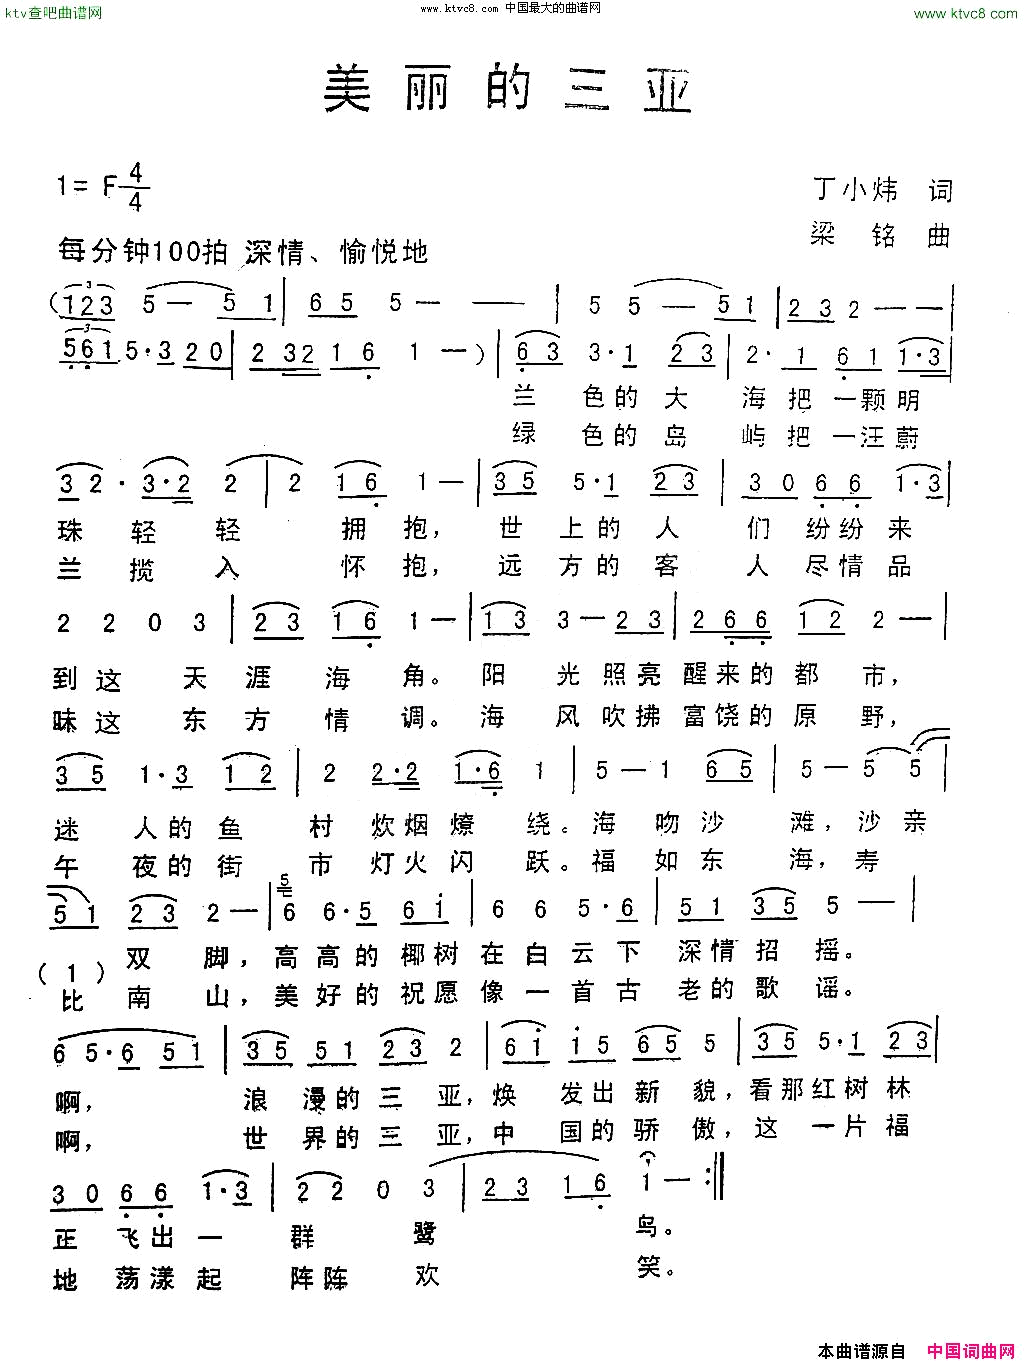 ktv查吧曲谱网
www.ktvc8.com 中国最大的曲谱网
www.ktvc8.com
美丽的三亚
1=F 4/4
丁小炜 词
梁铭 曲
每分钟100拍 深情、愉悦地
(123 5— 51 | 65 5— — | 5 5— 51 | 23 2— |
561 5·3 20 | 232 16 1—) | 63 3·1 23 | 2·1 61 1·3 |
兰色的大海把一颗明
绿色的岛屿把一汪蔚
32·3·2 2 | 2 16 1— | 35 5·1 23 | 30 66 1·3 |
珠轻轻拥抱，世上的人们纷纷来
兰揽入怀抱，远方的客人尽情品
2 2 0 3 | 23 16 1— | 13 3—23 | 266 12 2— |
到这天涯海角。阳光照亮醒来的都市，
味这东方情调。海风吹拂富饶的原野，
35 1·3 12 | 2 2·2 1·6 1 | 5—1 65 | 5—5 5 |
迷人的鱼村炊烟燎绕。海吻沙滩，沙亲
午夜的街市灯火闪跃。福如东海，寿
51 23 2— | 5 6 6·5 61 | 6 6 5·6 | 51 35 5— |
双脚，高高的椰树在白云下深情招摇。
(1)
比南山，美好的祝愿像一首古老的歌谣。
65·6 51 | 35 51 23 2 | 61 15 65 5 | 35 5·1 23 |
啊，浪漫的三亚，焕发出新貌，看那红树林
啊，世界的三亚，中国的骄傲，这一片福
30 66 1·3 | 22 0 3 | 23 16 1— :||
正飞出一群鹭鸟。
地荡漾起阵阵欢笑。
本曲谱源自 中国词曲网